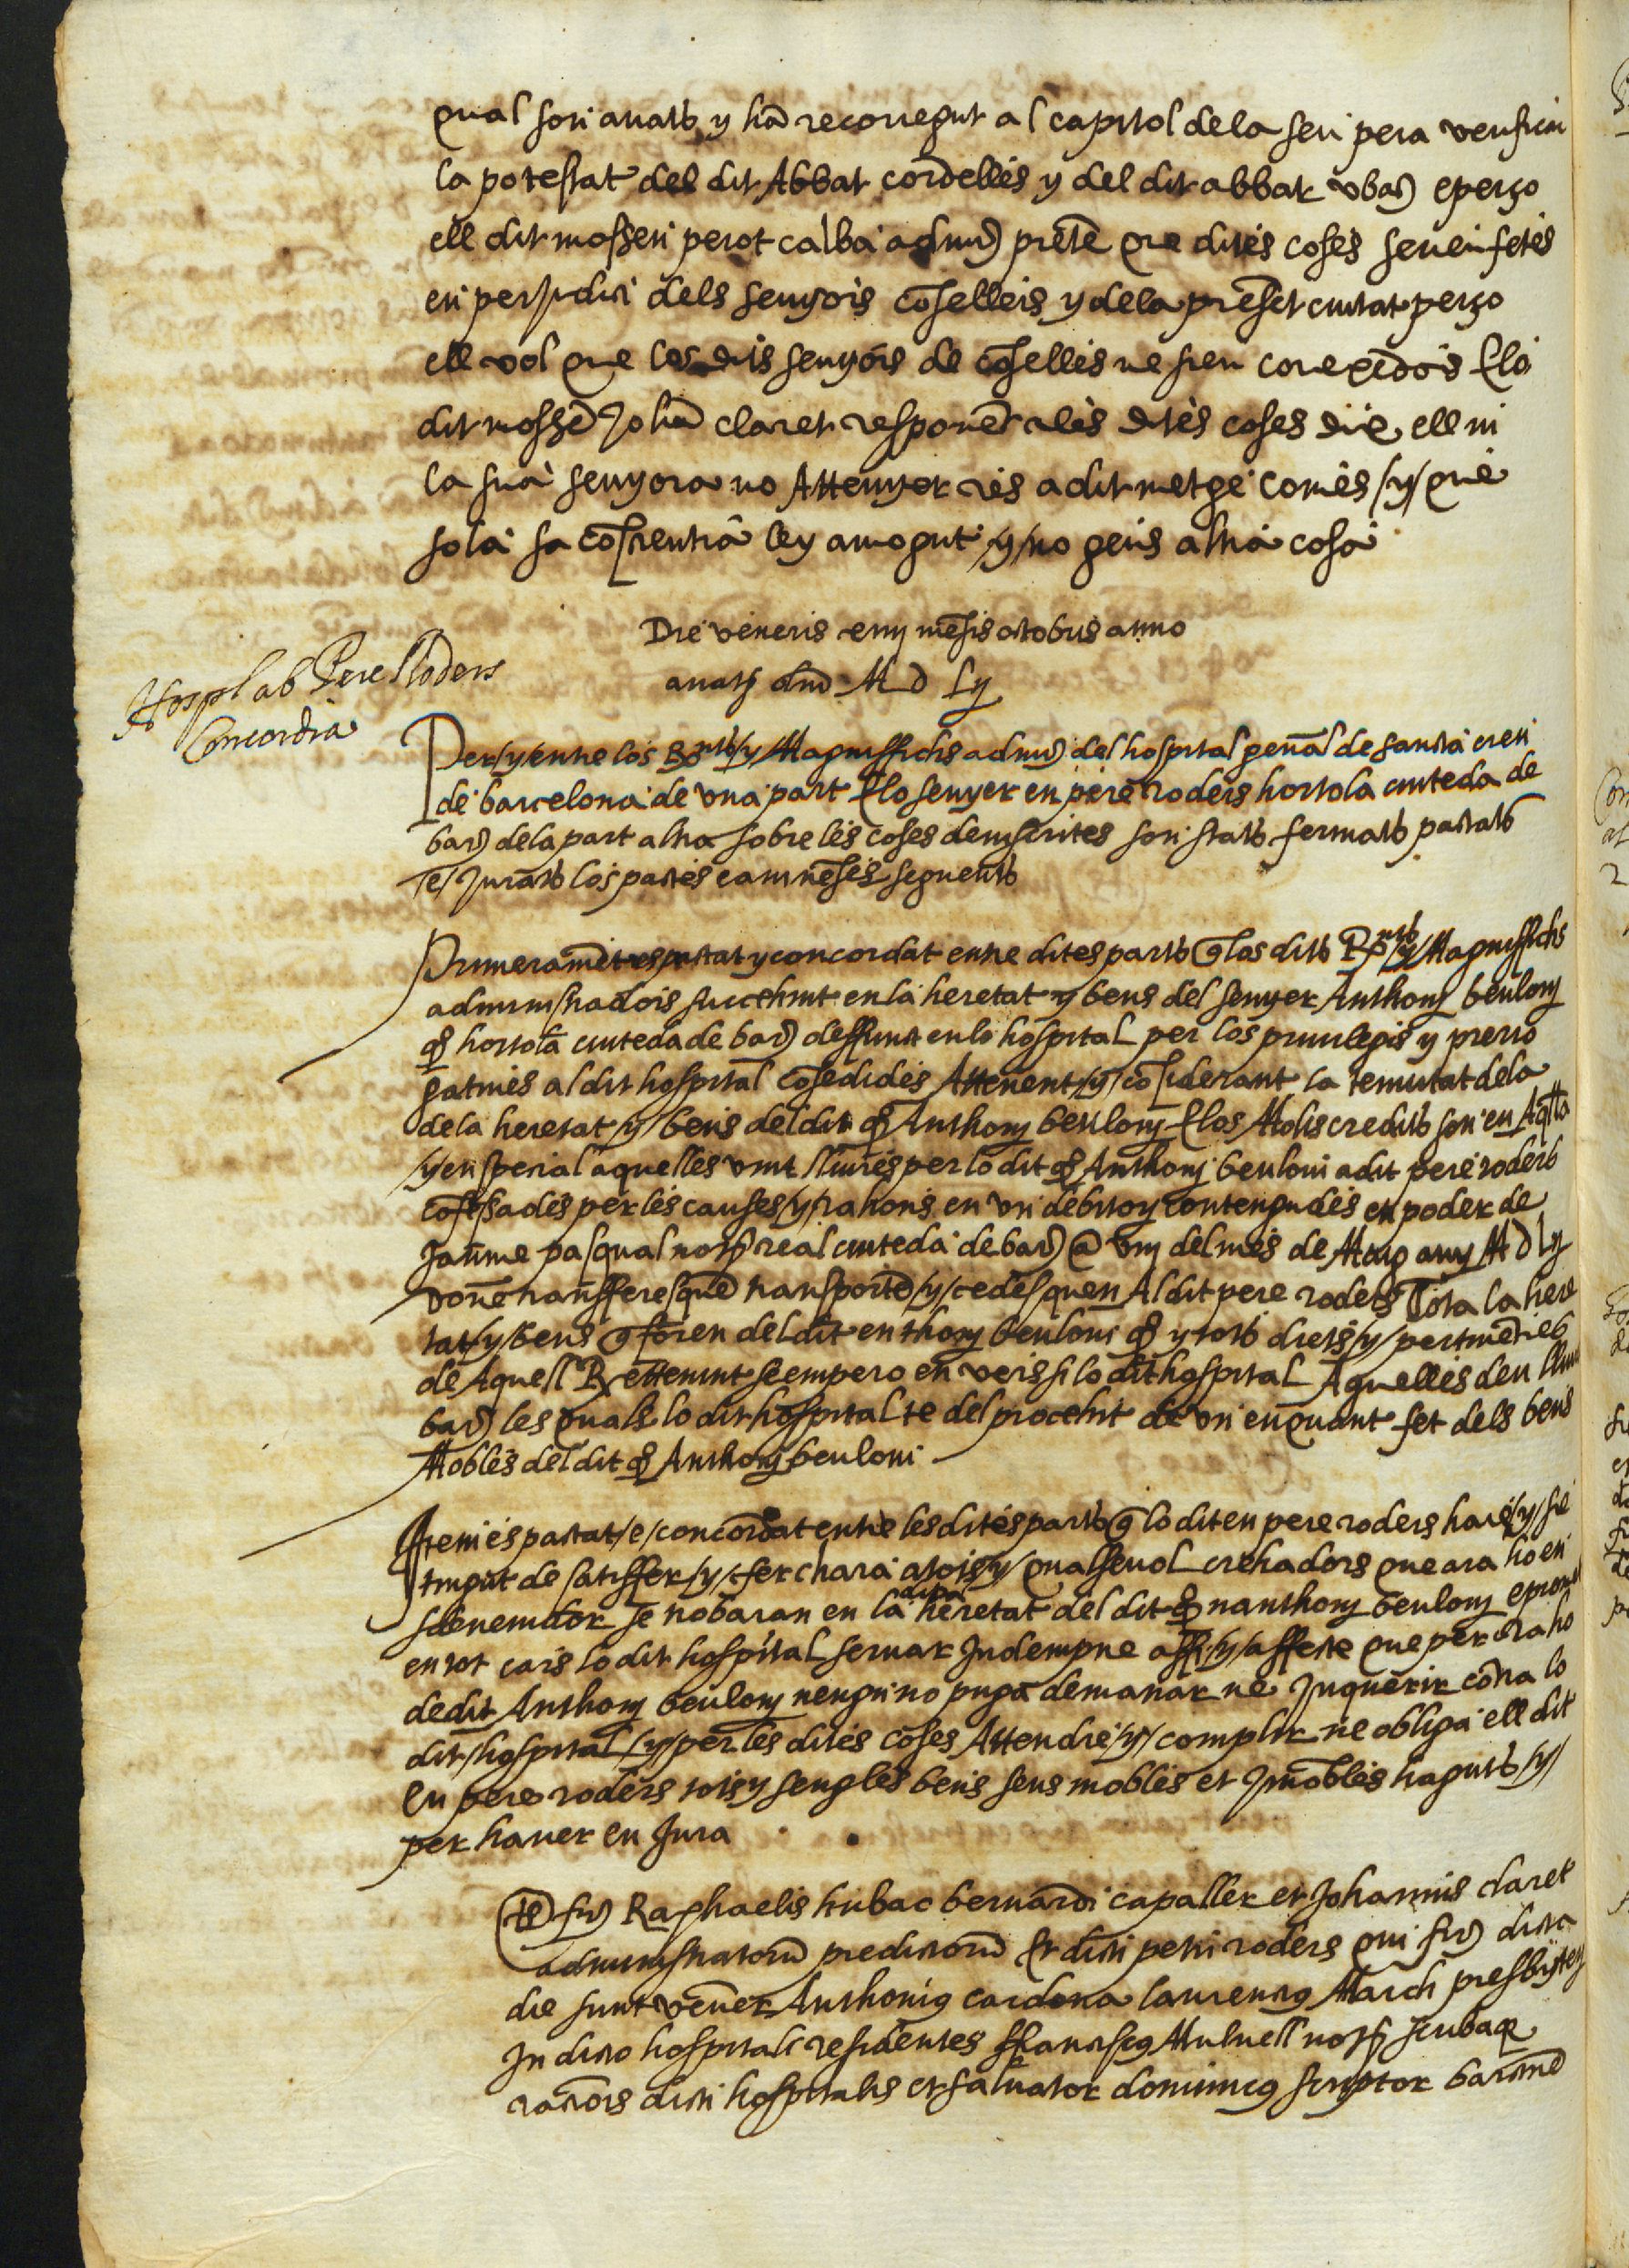 qual son anats y hã recorregut al capitol dela seu pera verificar
la potestat del dit Abbat cordelles y del dit abbat vbaȷ̃ eperço
ell dit mossen perot calba admȷ̃ pretẽ que dites coses serien fetes
en perjudici dels senyors cõsellers y dela presẽt ciutat perço
ell vol que los dits senyors de cõsellers ne sien conexedors E lo
dit mossẽ Johã claret responẽt ales dites coses dix ell ni
la sua senyora no Attenyer res a dit metge comes /y/ que
sola sa cõsientia ley a mogut /y/ no gens altra cosa
Die veneris mensis octobris anno
anatȷ dñi M D Lij
Hospl ab Pere Roders
Concordia
Per /y/ entre los Rnts /y/ Magniffichs admȷ̃ del hospital genãl de sancta creu
de barcelona de vna part E lo senyer en pere roders hortola ciuteda de
barȷ̃ dela part altra sobre les coses deuscrites son stats fermats pactats
/e/ Jurats los pactes e auinẽses seguents
Primeramẽt es pactat y concordat entre dites parts q̃ los dits Rnts /y/ Magniffichs
administradors succehint en la heretat y bens del senyer Anthony beulony
q̃ hortola ciuteda de barȷ̃ deffunct en lo hospital per los priuilegis y prerro
gatiues al dit hospital cõsedides Attenent /y/ cõsiderant la tenuitat dela
dela heretat /y/ bens del dit q̃ Anthony beulony E los Molts credits son en Aq̃lla
/y/ en special aquelles vint lliures per lo dit q̃ Anthony beuloni a dit pere roders
cõfessades per les causes /y/ rahons en vn debitory contengudes en poder de
Jaume pasqual notȷ̃ real ciuteda de barȷ̃ a viij del mes de Maig any M D Lij
donẽ transfferesquẽ transportẽ /y/ cedesquen Al dit pere roders Tota la here
tat /y/ bens q̃ foren del dit enthony beuloni q̃ y tots drets /y/ pertinẽties
de Aquell Rettenint se empero en vers si lo dit hospital Aquelles deu lliu
barȷ̃ les quals lo dit hospital te del procehit de vn enquant fet dels bens
Mobles del dit q̃ Anthony beuloni
Item es pactat /e/ concordat entre les dites parts q̃ lo dit en pere roders hare /y/ sie
tingut de satisffer /y/ fer chara a tots y qualseuol crehadors que ara ho en
sdeuenidor se trobaran en la dita heretat del dit q̃ nanthony beulony e promet
en tot cars lo dit hospital seruar Indempne assi /y/ affecte que per raho
de dit Anthony beulony nengu no puga demanar ne Inquerir cõtra lo
dit hospital /y/ per les dites coses Attendre /y/ complir ne obliga ell dit
En pere roders tots y sengles bens seus mobles et Jmobles haguts /y/
per hauer en Jura
ts fȷ̃ Raphaelis hubac bernardi capaller et Johannis claret
administratorũ predictorũ Et dicti petri roders qui fȷ̃ dicta
die sunt vener Anthoniꝯ cardona laurentiꝯ March presbiterȷ
In dicto hospitali residentes ffranciscꝯ Mulnell notȷ̃ scriba
racionis dicti hospitalis et saluator dominicꝯ scriptor barcinõe